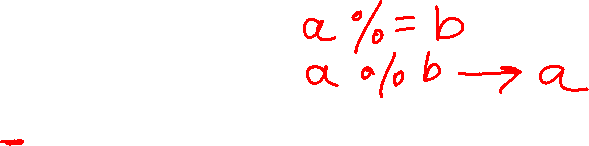 a %= b
a % b → a